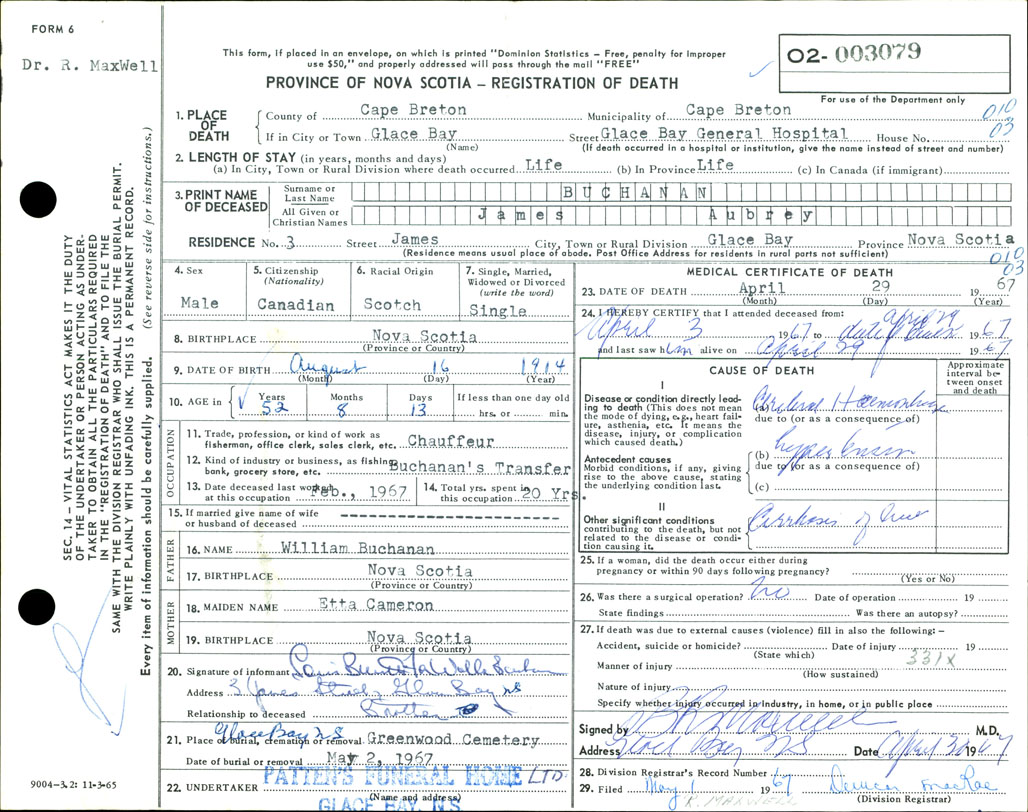 FORM 6
Dr. R. MaxWell
This form, if placed in an envelope, on which is printed "Dominion Statistics – Free, penalty for improper
use $50," and properly addressed will pass through the mail "FREE"
PROVINCE OF NOVA SCOTIA – REGISTRATION OF DEATH
02- 003079
For use of the Department only
010
03
1. PLACE OF DEATH
County of Cape Breton Municipality of Cape Breton
If in City or Town Glace Bay Street Glace Bay General Hospital House No.
(Name) (If death occurred in a hospital or institution, give the name instead of street and number)
2. LENGTH OF STAY (in years, months and days)
(a) In City, Town or Rural Division where death occurred Life (b) In Province Life (c) In Canada (if immigrant)
3. PRINT NAME OF DECEASED
Surname or Last Name BUCHANAN
All Given or Christian Names James Aubrey
RESIDENCE No. 3 Street James City, Town or Rural Division Glace Bay Province Nova Scotia
(Residence means usual place of abode. Post Office Address for residents in rural parts not sufficient)
010
03
4. Sex
Male
5. Citizenship
(Nationality)
Canadian
6. Racial Origin
Scotch
7. Single, Married,
Widowed or Divorced
(write the word)
Single
8. BIRTHPLACE Nova Scotia
(Province or Country)
9. DATE OF BIRTH August 16 1914
(Month) (Day) (Year)
10. AGE in Years Months Days If less than one day old
52 8 13 hrs. or min.
OCCUPATION
11. Trade, profession, or kind of work as
fisherman, office clerk, sales clerk, etc. Chauffeur
12. Kind of industry or business, as fishing,
bank, grocery store, etc. Buchanan's Transfer
13. Date deceased last worked
at this occupation Feb., 1967
14. Total yrs. spent in
this occupation 20 Yrs.
15. If married give name of wife
or husband of deceased
FATHER
16. NAME William Buchanan
17. BIRTHPLACE Nova Scotia
(Province or Country)
MOTHER
18. MAIDEN NAME Etta Cameron
19. BIRTHPLACE Nova Scotia
(Province or Country)
20. Signature of informant
Address 3 James Street, Glace Bay NS
Relationship to deceased Brother
21. Place of burial, cremation or removal Glace Bay N S Greenwood Cemetery
Date of burial or removal May 2, 1967
22. UNDERTAKER PATTEN'S FUNERAL HOME LTD.
(Name and address)
GLACE BAY, N.S.
MEDICAL CERTIFICATE OF DEATH
23. DATE OF DEATH April 29 1967
(Month) (Day) (Year)
24. I HEREBY CERTIFY that I attended deceased from:
April 3 1967 to date of death April 29 1967
and last saw him alive on April 29 1967
CAUSE OF DEATH
Approximate interval between onset and death
I
Disease or condition directly leading to death (This does not mean the mode of dying, e.g., heart failure, asthenia, etc. It means the disease, injury, or complication which caused death.)
(a) Cerebral Haemorrhage
due to (or as a consequence of)
Antecedent causes
Morbid conditions, if any, giving rise to the above cause, stating the underlying condition last.
(b) hypertension
due to (or as a consequence of)
(c)
II
Other significant conditions contributing to the death, but not related to the disease or condition causing it.
Cirrhosis of liver
25. If a woman, did the death occur either during
pregnancy or within 90 days following pregnancy?
(Yes or No)
26. Was there a surgical operation? no Date of operation 19
State findings Was there an autopsy?
27. If death was due to external causes (violence) fill in also the following: –
Accident, suicide or homicide? Date of injury 19
(State which) 331X
Manner of injury
(How sustained)
Nature of injury
Specify whether injury occurred in industry, in home, or in public place
Signed by M.D.
Address Glace Bay NS Date April 30 1967
28. Division Registrar's Record Number 67
29. Filed May 1 Duncan MacRae
R. MAXWELL (Division Registrar)
SEC. 14 – VITAL STATISTICS ACT MAKES IT THE DUTY
OF THE UNDERTAKER OR PERSON ACTING AS UNDER-
TAKER TO OBTAIN ALL THE PARTICULARS REQUIRED
IN THE "REGISTRATION OF DEATH" AND TO FILE THE
SAME WITH THE DIVISION REGISTRAR WHO SHALL ISSUE THE BURIAL PERMIT.
WRITE PLAINLY WITH UNFADING INK. THIS IS A PERMANENT RECORD.
Every item of information should be carefully supplied. (See reverse side for instructions.)
9004-3.2: 11-3-65